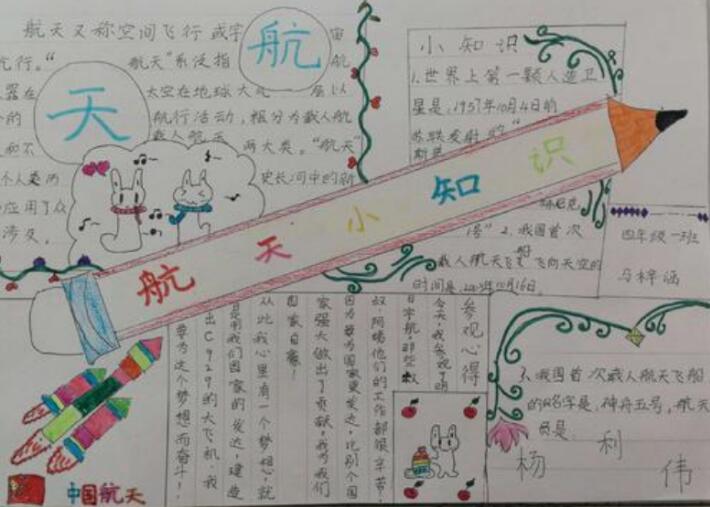 航天又称空间飞行或宇宙
航行。“航天”系泛指航
器在太空在地球大气
航行活动，粗分为载人航
载人航天两大类。“航天”
史长河中的新
应用了众
涉及。
航天
小知识
1.世界上第一颗人造卫
星是：1957年10月4日的
苏联发射的“
斯
1号”2.我国首次
载人航天飞船飞向天空的
时间是2003年10月16日。
四年级一班
马梓涵
航天小知识
参观心得
今天，我参观了明
日宇航，那些叔
叔、阿姨他们的工作都很辛苦！
因为要为国家更发达，比别个国
家强大做出了贡献，我为我们
国家自豪！
从此我心里有一个梦想，就
是用我们国家的发达，建造
出C929的大飞机，我
要为这个梦想而奋斗！
3.我国首次载人航天飞船
的名字是：神舟五号，航天
员是：
杨利伟
中国航天